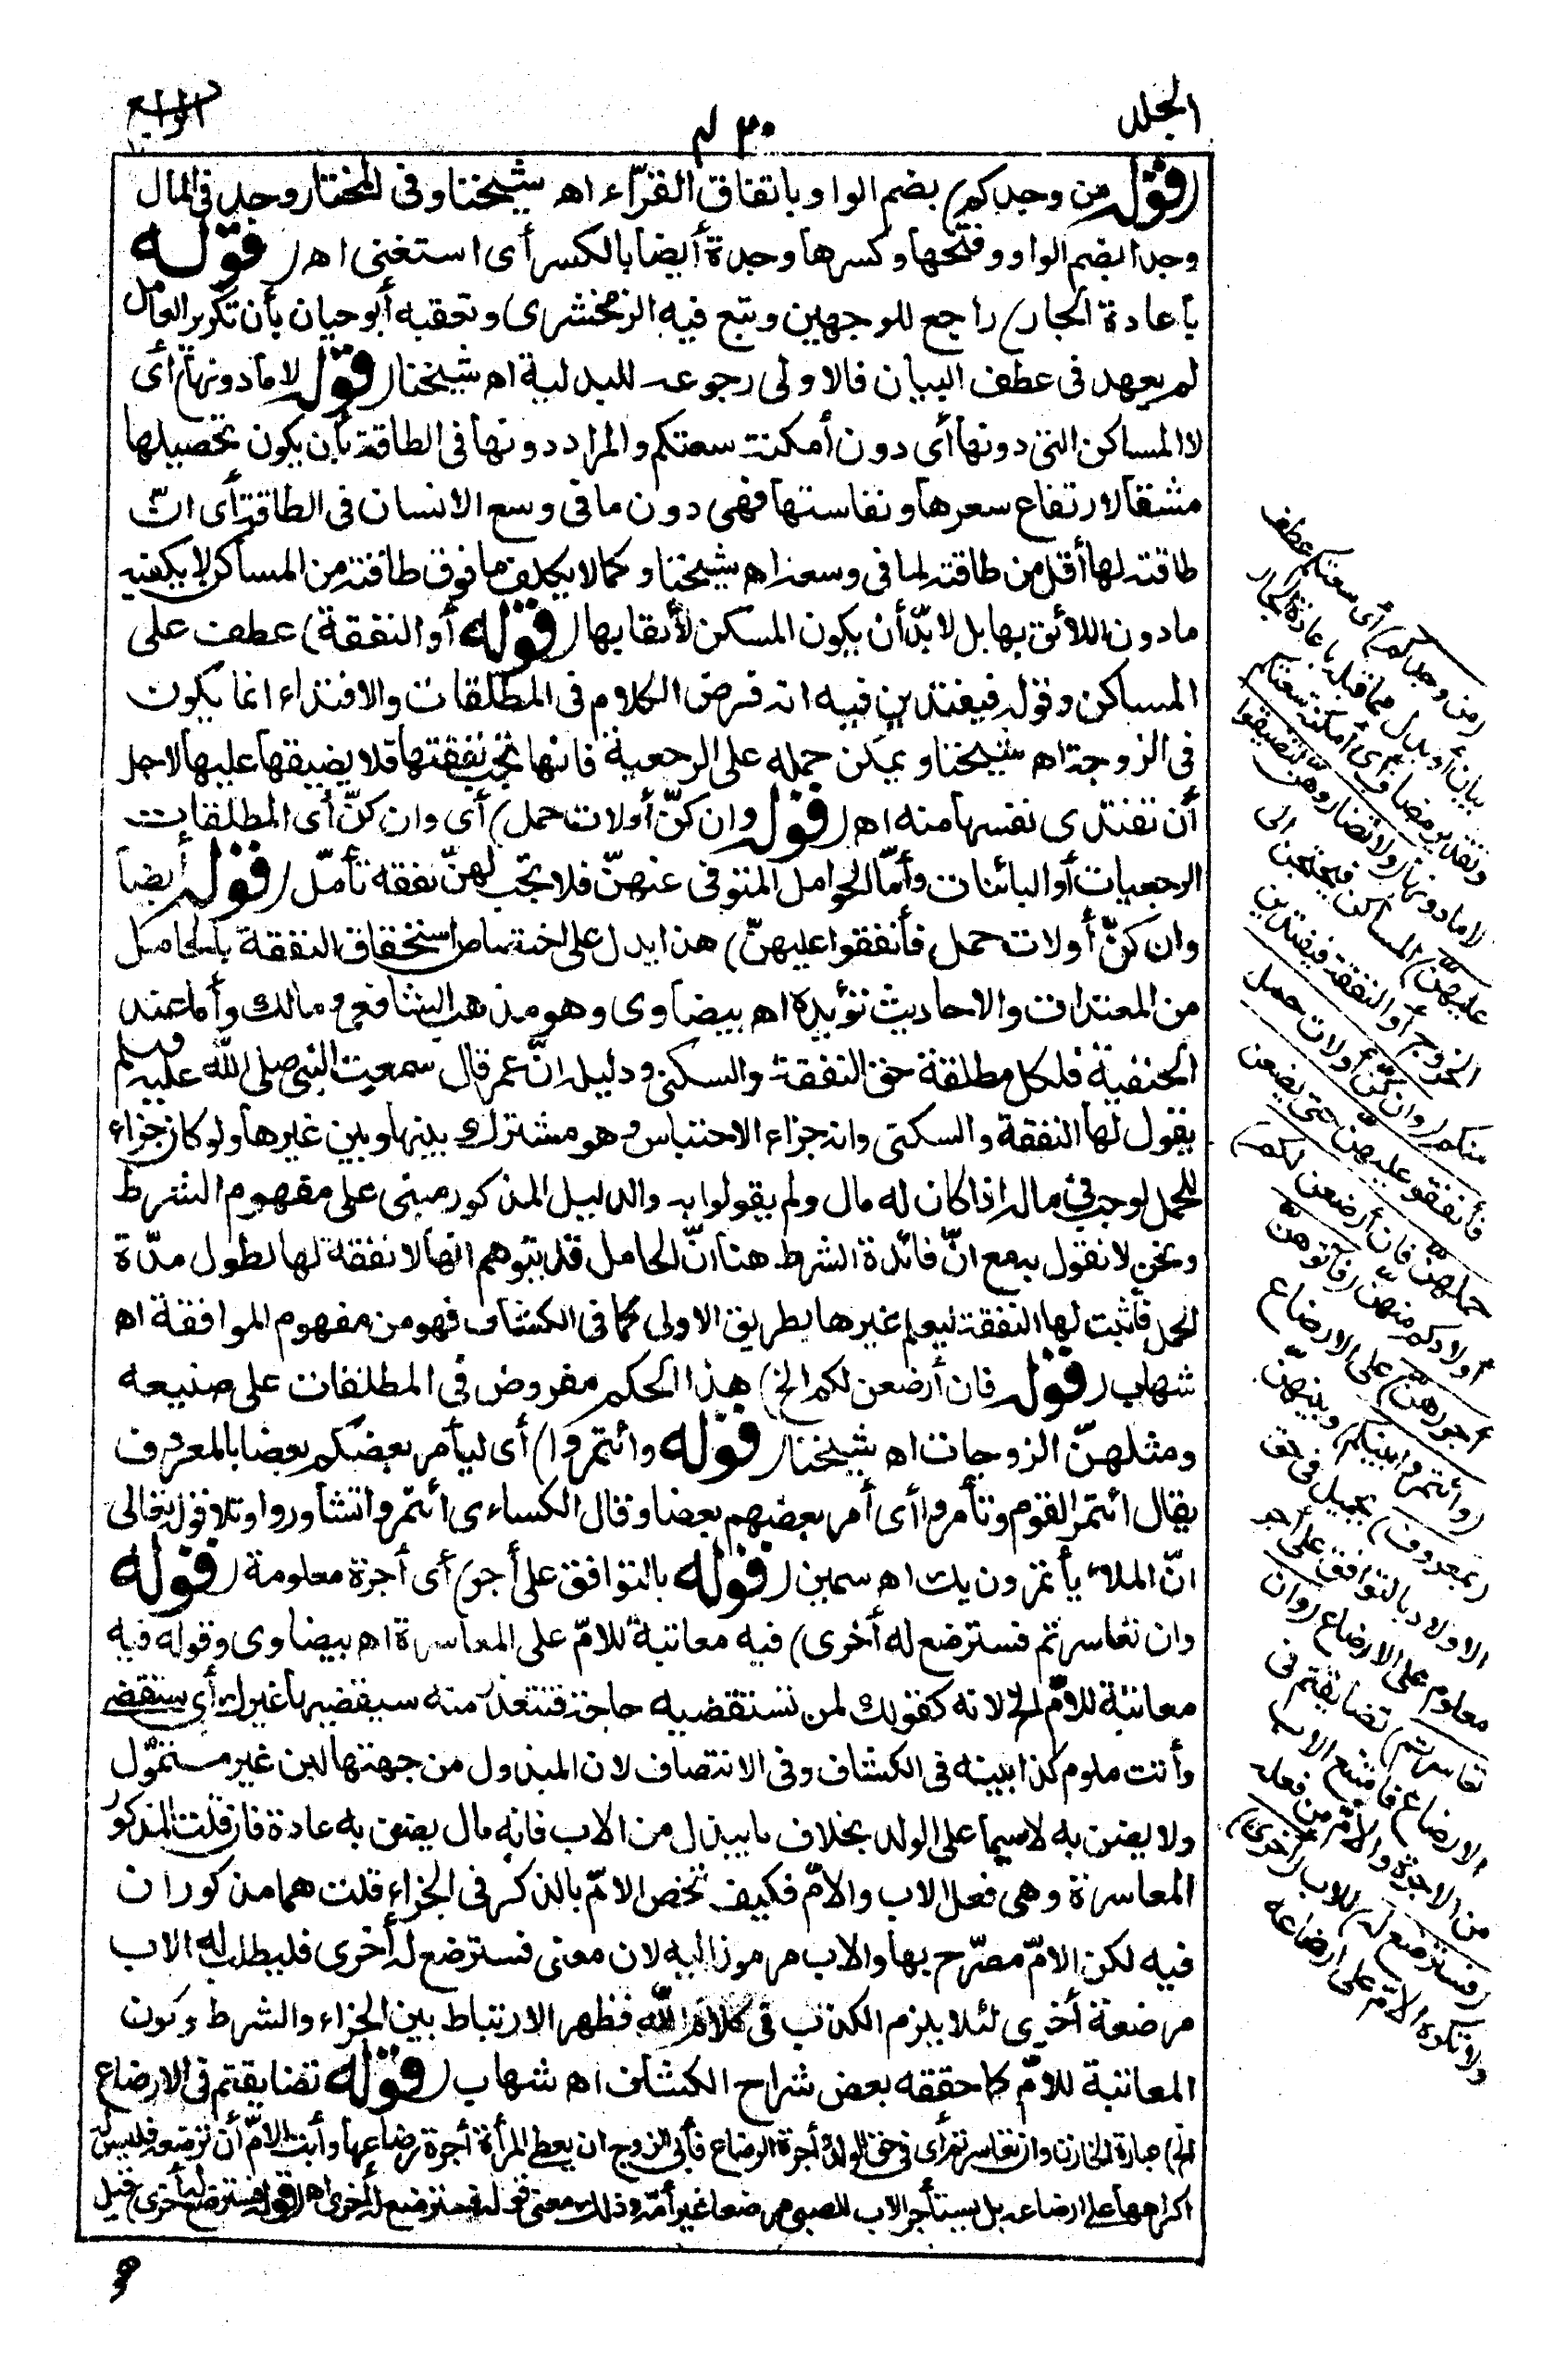 الجلد
٣٠٤
الرابع
(قوله من وجدكم) بضم الواو باتفاق القرّاء اه شيخنا وفى المختار وجد فى المال
وجدا بضم الواو وفتحها وكسرها وجدة أيضا بالكسر أى استغنى اه (قوله
باعادة الجار) راجع للوجهين وتبع فيه الزمخشرى وتعقبه أبو حيان بأن تكرير العامل
لم يعهد فى عطف البيان فالاولى رجوعه للبدلية اه شيخنا (قوله لا مادونها) أى
لا المساكن التى دونها أى دون أمكنة سعتكم والمراد دونها فى الطاقة بأن يكون تحصيلها
مشقا لارتفاع سعرها ونفاستها فهى دون ما فى وسع الانسان فى الطاقة أى انّ
طاقته لها أقل من طاقته لما فى وسعه اه شيخنا وكما لا يكلف ما فوق طاقته من المساكن لا يكفيه
مادون اللائق بها بل لا بدّ أن يكون المسكن لائقا بها (قوله أو النفقة) عطف على
المساكن وقوله فيفتدين فيه انه فرض الكلام فى المطلقات والافتداء انما يكون
فى الزوجة اه شيخنا ويمكن حمله على الرجعية فانها تجب نفقتها فلا يضيقها عليها لاجل
أن تفتدى نفسها منه اه (قوله وان كنّ أولات حمل) أى وان كنّ أى المطلقات
الرجعيات أو البائنات وأمّا الحوامل المتوفى عنهنّ فلا تجب لهنّ نفقة تأمّل (قوله أيضا
وان كنّ أولات حمل فأنفقوا عليهنّ) هذا يدل على اختصاص استحقاق النفقة بالحامل
من المعتدات والاحاديث تؤيده اه بيضاوى وهو مذهب الشافعى ومالك وأما عند
الحنفية فلكل مطلقة حق النفقة والسكنى ودليله انّ عمر قال سمعت النبى صلى الله عليه وسلم
يقول لها النفقة والسكنى وانه جزاء الاحتباس وهو مشترك بينها وبين غيرها ولو كان جزاء
للحمل لوجب فى ماله اذا كان له مال ولم يقولوا به والدليل المذكور مبنى على مفهوم الشرط
ونحن لا نقول به مع انّ فائدة الشرط هنا انّ الحامل قد يتوهم انها لا نفقة لها لطول مدّة
الحمل فأثبت لها النفقة ليعلم غيرها بطريق الاولى كما فى الكشاف فهو من مفهوم الموافقة اه
شهاب (قوله فان أرضعن لكم الخ) هذا الحكم مفروض فى المطلقات على صنيعه
ومثلهنّ الزوجات اه شيخنا (قوله وائتمروا) أى ليأمر بعضكم بعضا بالمعروف
يقال ائتمر القوم وتأمروا أى أمر بعضهم بعضا وقال الكساءى ائتمروا تشاوروا وتلا قوله تعالى
انّ الملأ يأتمرون بك اه سمين (قوله بالتوافق على أجر) أى أجرة معلومة (قوله
وان تعاسرتم فسترضع له أخرى) فيه معاتبة للامّ على المعاسرة اه بيضاوى وقوله فيه
معاتبة للامّ الخ لانه كقولك لمن تستقضيه حاجة فتتعذر منه سيقضيها غيرك أى ستقضى
وأنت ملوم كذا بينه فى الكشاف وفى الانتصاف لان المبذول من جهتها لبن غير متموّل
ولا يضن به لاسيما على الولد بخلاف ما يبذل من الاب فانه مال يضن به عادة فان قلت المذكور
المعاسرة وهى فعل الاب والامّ فكيف تخص الامّ بالذكر فى الجزاء قلت هما مذكوران
فيه لكن الامّ مصرّح بها والاب مرموز اليه لان معنى فسترضع له أخرى فليطلب له الاب
مرضعة أخرى لئلا يلزم الكذب فى كلام الله فظهر الارتباط بين الجزاء والشرط وكون
المعاتبة للامّ كما حققه بعض شراح الكشاف اه شهاب (قوله تضايقتم فى الارضاع
الخ) عبارة الخازن وان تعاسرتم أى فى حق الولد أجرة الرضاع فأبى الزوج ان يعطى المرأة أجرة رضاعها وأبت الامّ أن ترضعه فليس له
اكراهها على ارضاعه بل يستأجر الاب للصبى مرضعا غير أمّه وذلك معنى قوله فسترضع له أخرى اه (قوله فسترضع له أخرى) قيل
(من وجدكم) أى سعتكم عطف
بيان أو بدل مما قبله باعادة الجار
وتقدير مضاف أى أمكنة سعتكم
لا مادونها (ولا تضاروهنّ لتضيقوا
عليهنّ) المساكن فيحتجن الى
الخروج أو النفقة فيفتدين
منكم (وان كنّ أولات حمل
فأنفقوا عليهنّ حتى يضعن
حملهنّ فان أرضعن لكم)
أولادكم منهنّ (فآتوهنّ
أجورهنّ) على الارضاع
(وائتمروا بينكم) وبينهنّ
(بمعروف) بجميل فى حق
الاولاد بالتوافق على أجر
معلوم على الارضاع (وان
تعاسرتم) تضايقتم فى
الارضاع فامتنع الاب
من الاجرة والامّ من فعله
(فسترضع له) للاب (أخرى)
ولا تكره الامّ على ارضاعه